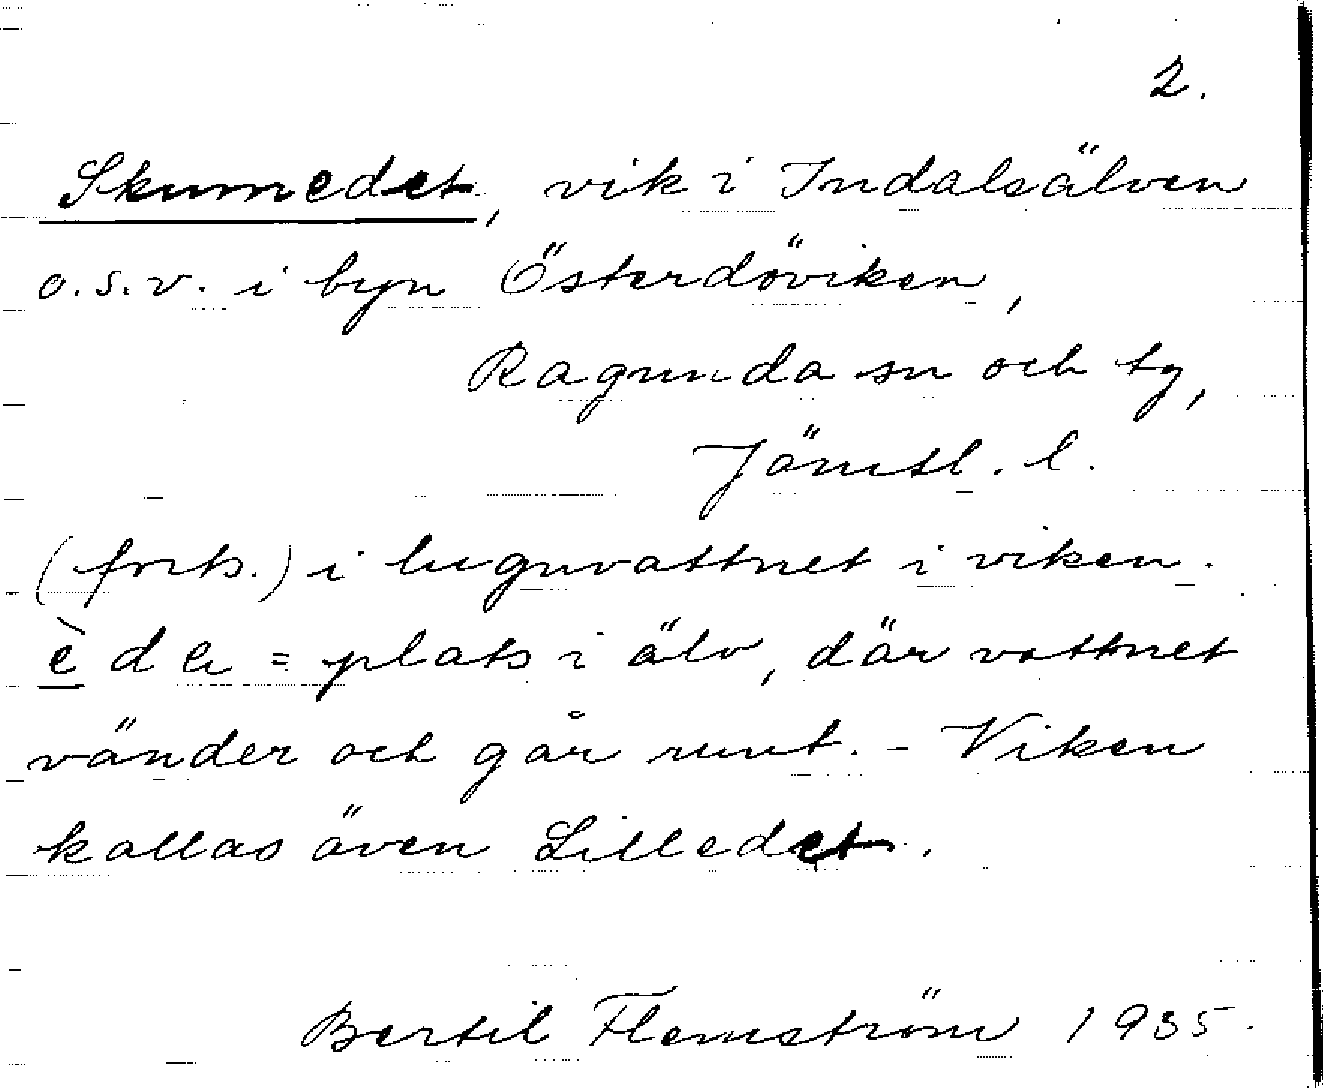 2.
Skumedet, vik i Indalsälven
o.s.v. i byn Österdöviken,
Ragunda sn och tg,
Jämtl. l.
(forts.) i lugnvattnet i viken.
èda = plats i älv, där vattnet
vänder och går runt. - Viken
kallas även Lilledet.
Bertil Flemström 1935.